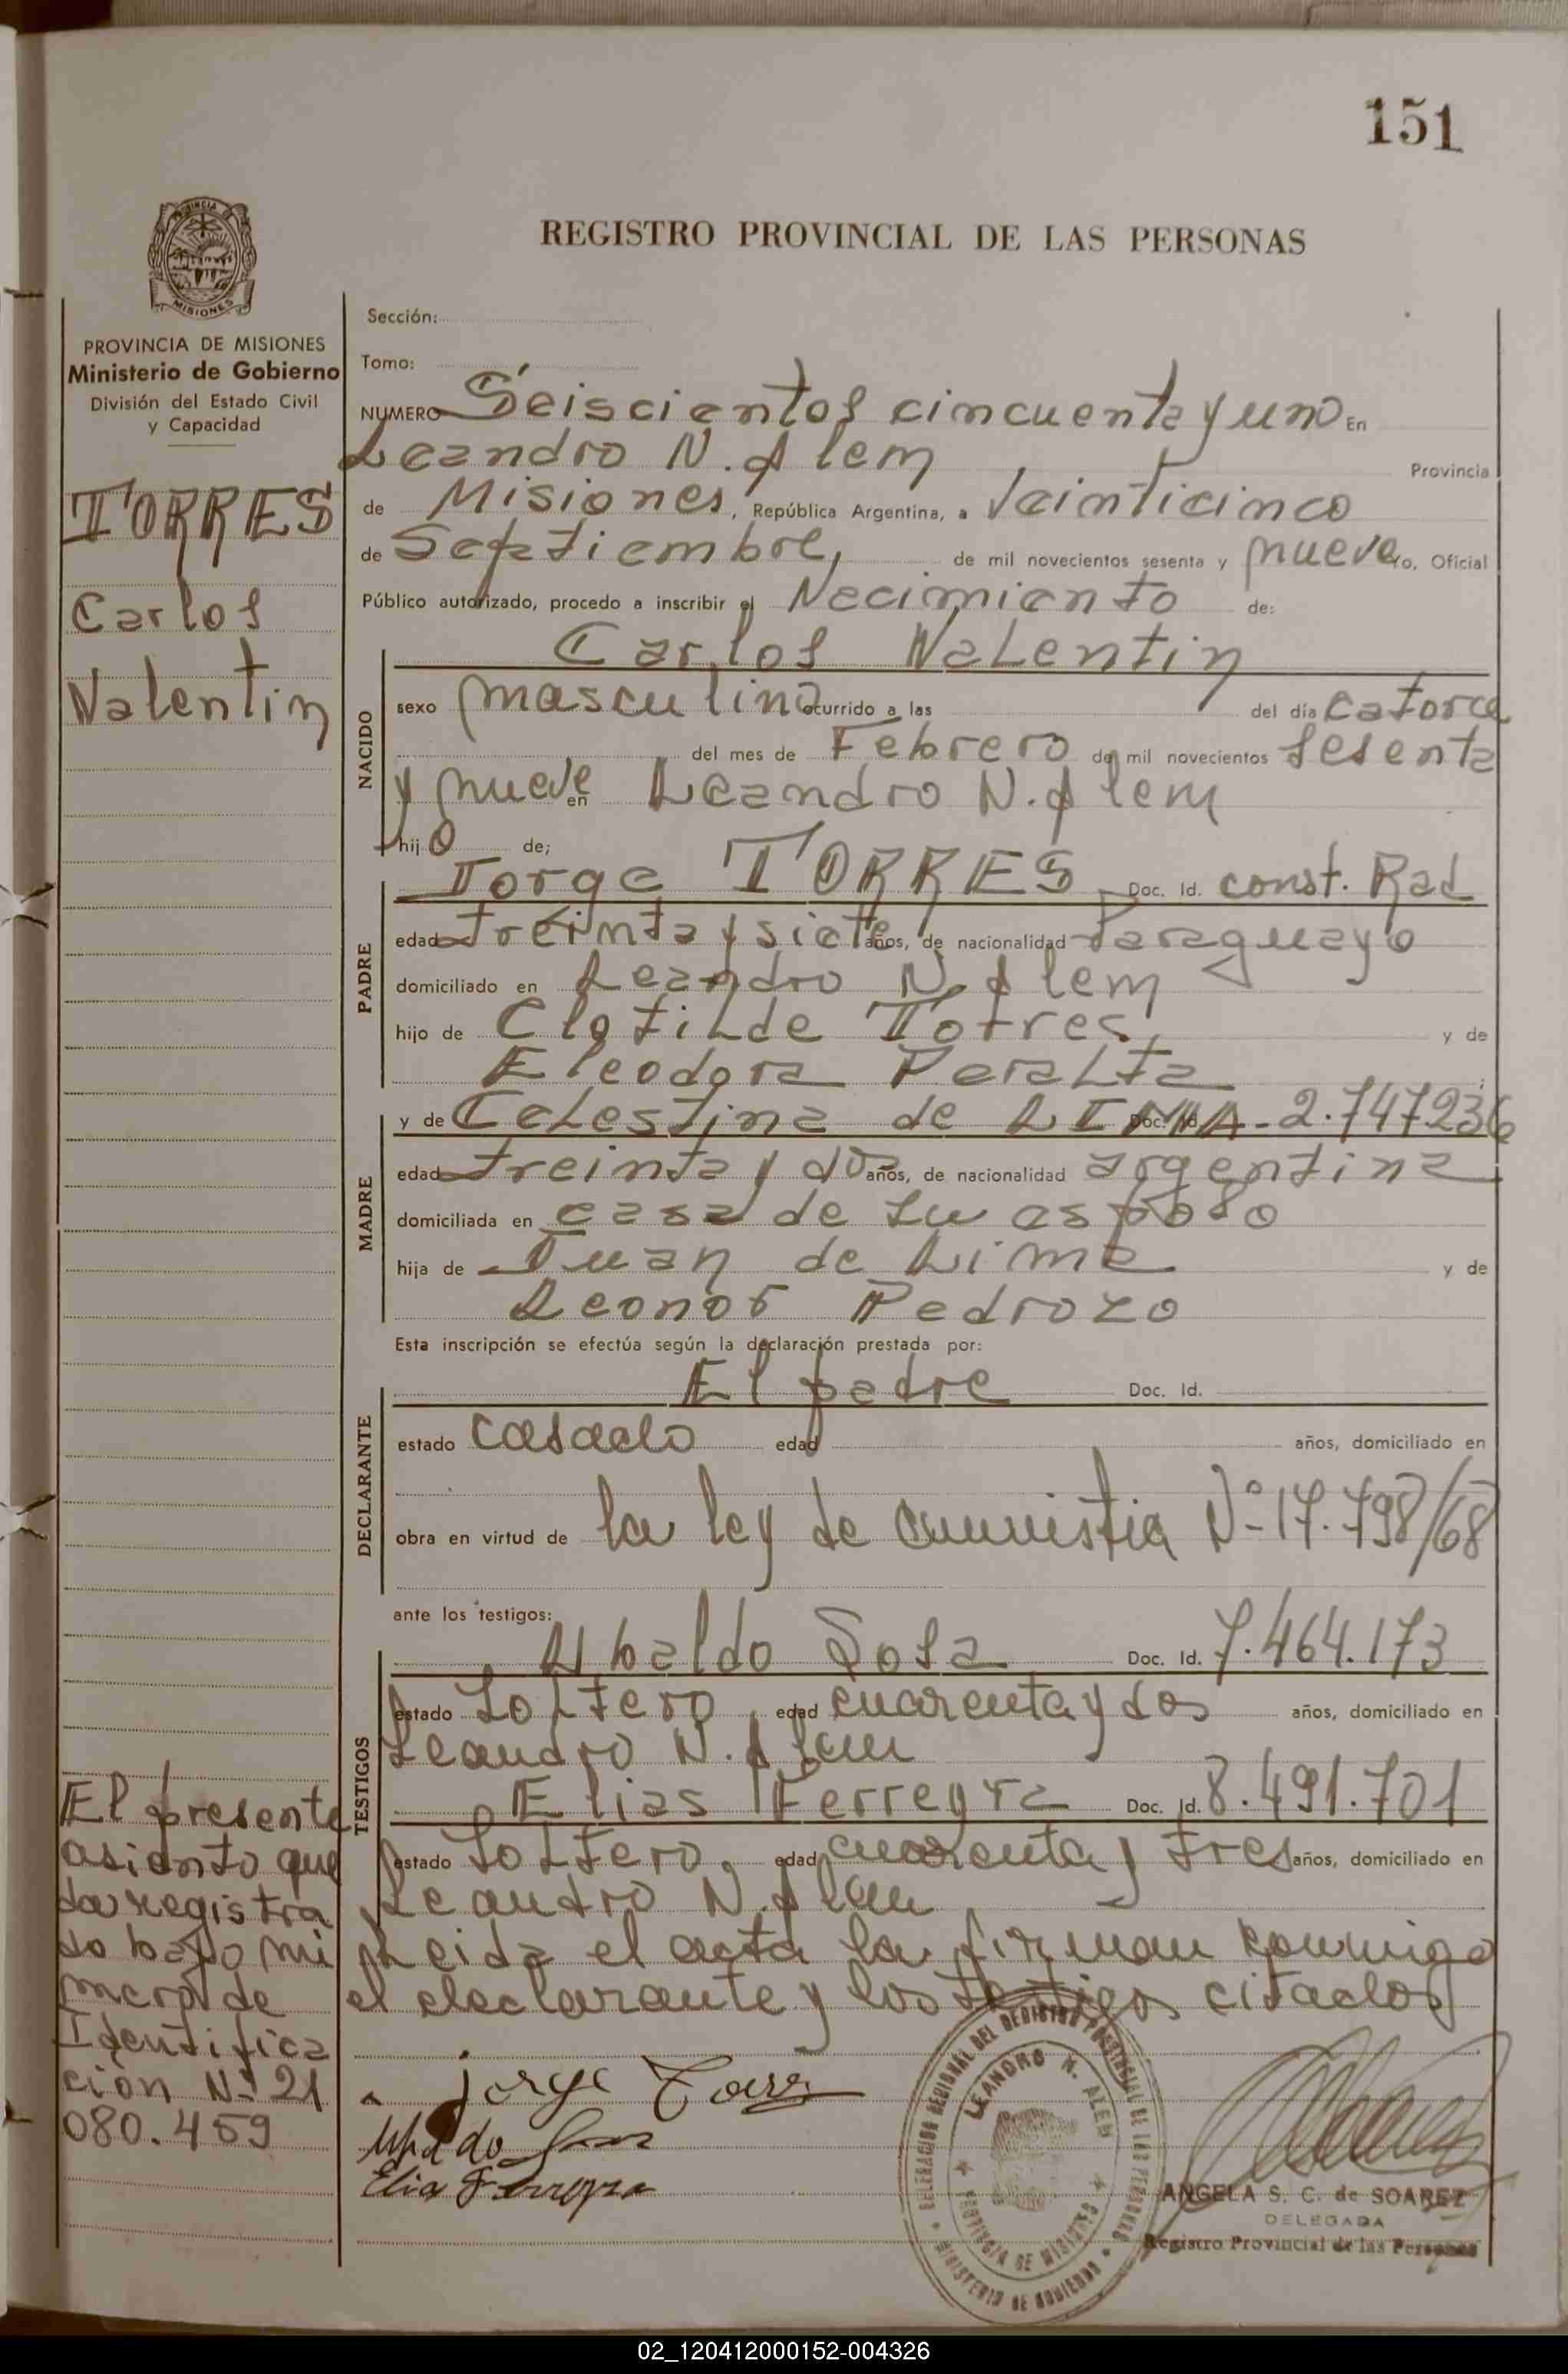 151
REGISTRO PROVINCIAL DE LAS PERSONAS
PROVINCIA DE MISIONES
Ministerio de Gobierno
División del Estado Civil
y Capacidad
TORRES
Carlos
Valentin
El presente
asiento que
da registra
do bajo nú
mero de
Identifica
ción Nº 21
080.459
Sección:
Tomo:
NUMERO Seiscientos cincuenta y uno En
Leandro N. Alem Provincia
de Misiones, República Argentina, a Veinticinco
de Septiembre, de mil novecientos sesenta y nueve Yo, Oficial
Público autorizado, procedo a inscribir el Nacimiento de:
NACIDO
Carlos Valentin
sexo masculino ocurrido a las del día catorce
del mes de Febrero de mil novecientos sesenta
y nueve en Leandro N. Alem
hijo de;
PADRE
Jorge TORRES Doc. Id. const. Rad
edad treinta y siete años, de nacionalidad Paraguayo
domiciliado en Leandro N. Alem
hijo de Clotilde Torres y de
Eleodora Peralta
MADRE
y de Celestina de LIMA Doc. Id. 2.747236
edad treinta y dos años, de nacionalidad argentina
domiciliada en casa de su esposo
hija de Juan de Lima y de
Leonor Pedrozo
Esta inscripción se efectúa según la declaración prestada por:
DECLARANTE
El padre Doc. Id.
estado casado edad años, domiciliado en
obra en virtud de la ley de amnistia Nº 17.798/68
ante los testigos:
TESTIGOS
Ubaldo Sosa Doc. Id. 7.464.173
estado soltero edad cuarenta y dos años, domiciliado en
Leandro N. Alem
Elias Ferreyra Doc. Id. 8.491.701
estado soltero, edad cuarenta y tres años, domiciliado en
Leandro N. Alem
Leida el acta la firman conmigo
el declarante y los testigos citados
jorge Torre
Ubaldo Sosa
Elia Ferreyra
DELEGACION REGIONAL DEL REGISTRO PROVINCIAL DE LAS PERSONAS
LEANDRO N. ALEM
PROVINCIA DE MISIONES
MINISTERIO DE GOBIERNO
ANGELA S. C. de SOAREZ
DELEGADA
Registro Provincial de las Personas
02_120412000152-004326